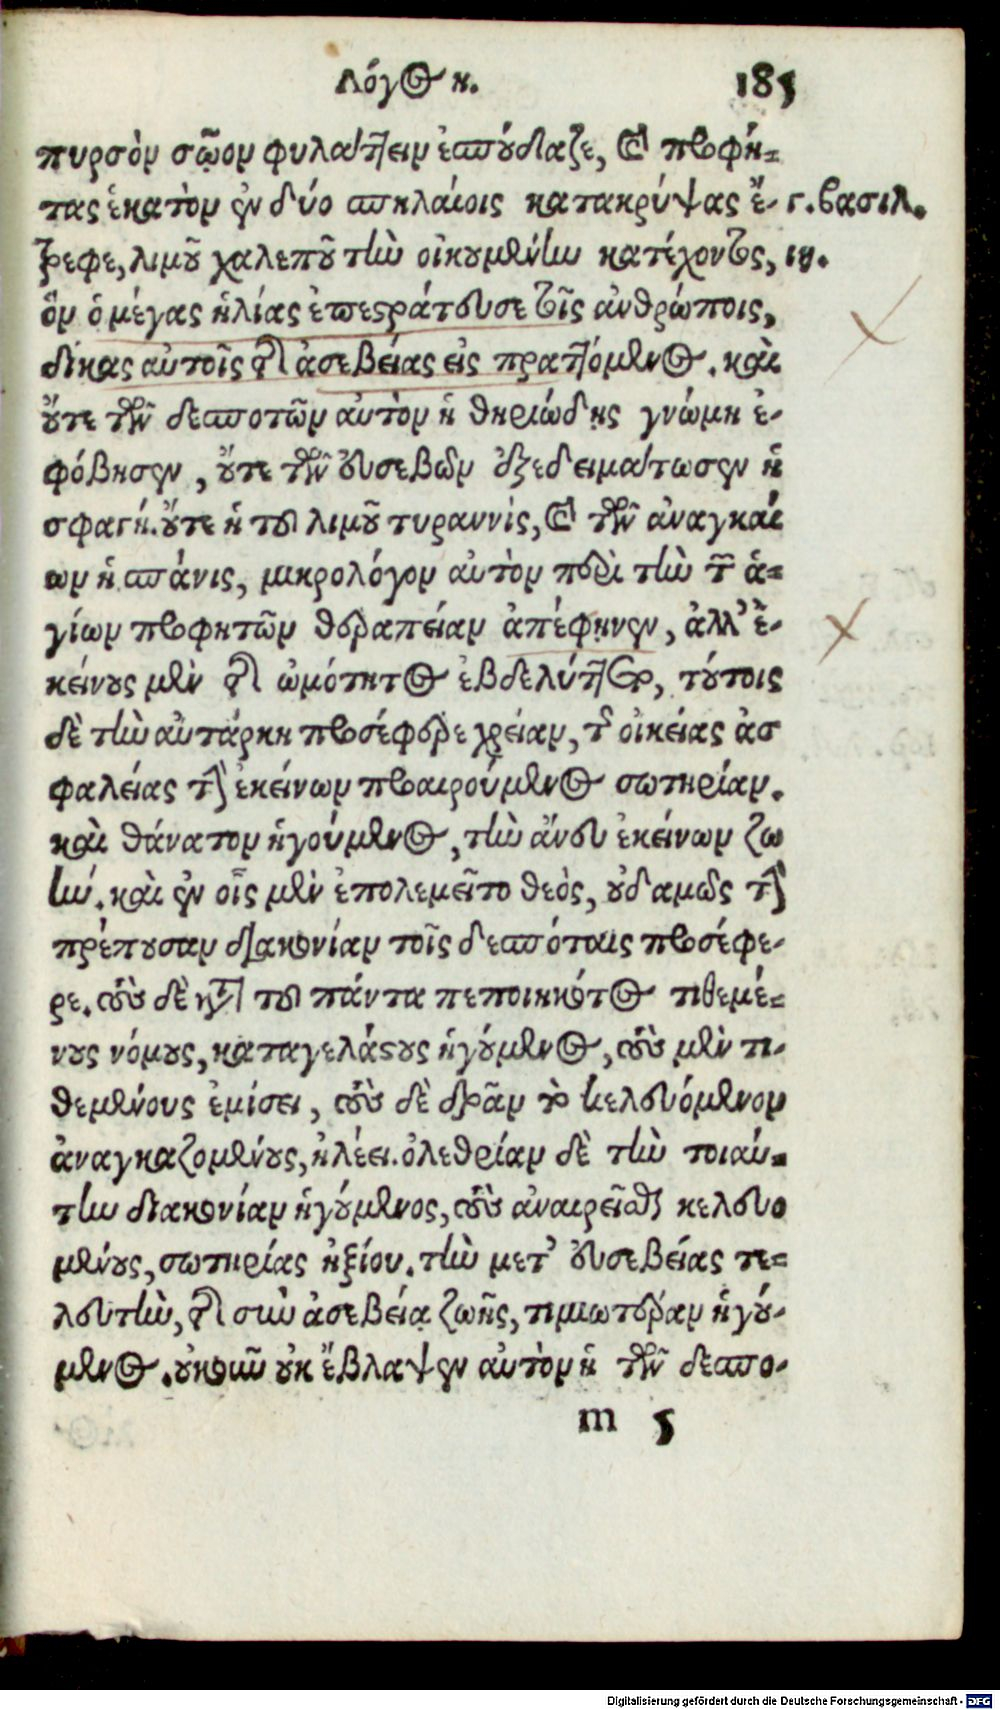 Λόγος η. 185
πυρσὸν σῶον φυλάττειν ἐσπούδαζε, καὶ προφή-
τας ἑκατὸν ἐν δύο σπηλαίοις κατακρύψας ἔ-
τρεφε, λιμοῦ χαλεποῦ τὴν οἰκουμένην κατέχοντος,
ὃν ὁ μέγας ἡλίας ἐπεστράτευσε τοῖς ἀνθρώποις,
δίκας αὐτοῖς τῆς ἀσεβείας εἰς πραττόμενος. καὶ
οὔτε τῶν δεσποτῶν αὐτὸν ἡ θηριώδης γνώμη ἐ-
φόβησεν, οὔτε τῶν εὐσεβῶν ἐξεδειμάτωσεν ἡ
σφαγή. οὔτε ἡ τοῦ λιμοῦ τυραννὶς, καὶ τῶν ἀναγκαί
ων ἡ σπάνις, μικρολόγον αὐτὸν περὶ τὴν τῶν ἁ-
γίων προφητῶν θεραπείαν ἀπέφηνεν, ἀλλ' ἐ-
κείνους μὲν τῆς ὠμότητος ἐβδελύττετο, τούτοις
δὲ τὴν αὐτάρκη προσέφερε χρείαν, τῆς οἰκείας ἀσ
φαλείας τὴν ἐκείνων προαιρούμενος σωτηρίαν.
καὶ θάνατον ἡγούμενος, τὴν ἄνευ ἐκείνων ζω
ήν. καὶ ἐν οἷς μὲν ἐπολεμεῖτο θεὸς, οὐδαμῶς τὴν
πρέπουσαν διακονίαν τοῖς δεσπόταις προσέφε-
ρε. τοὺς δὲ κατὰ τοῦ πάντα πεποιηκότος τιθεμέ-
νους νόμους, καταγελάστους ἡγούμενος, τοὺς μὲν τι-
θεμένους ἐμίσει, τοὺς δὲ δρᾶν τὸ κελευόμενον
ἀναγκαζομένους, ἠλέει. ὀλεθρίαν δὲ τὴν τοιαύ-
την διακονίαν ἡγούμενος, τοὺς ἀναιρεῖσθαι κελευο
μένους, σωτηρίας ἠξίου. τὴν μετ' εὐσεβείας τε-
λευτὴν, τῆς σὺν ἀσεβείᾳ ζωῆς, τιμιωτέραν ἡγού-
μενος. οὐκοῦν οὐκ ἔβλαψεν αὐτὸν ἡ τῶν δεσπο-
m 5
γ. βασιλ.
ιη.
Digitalisierung gefördert durch die Deutsche Forschungsgemeinschaft - DFG